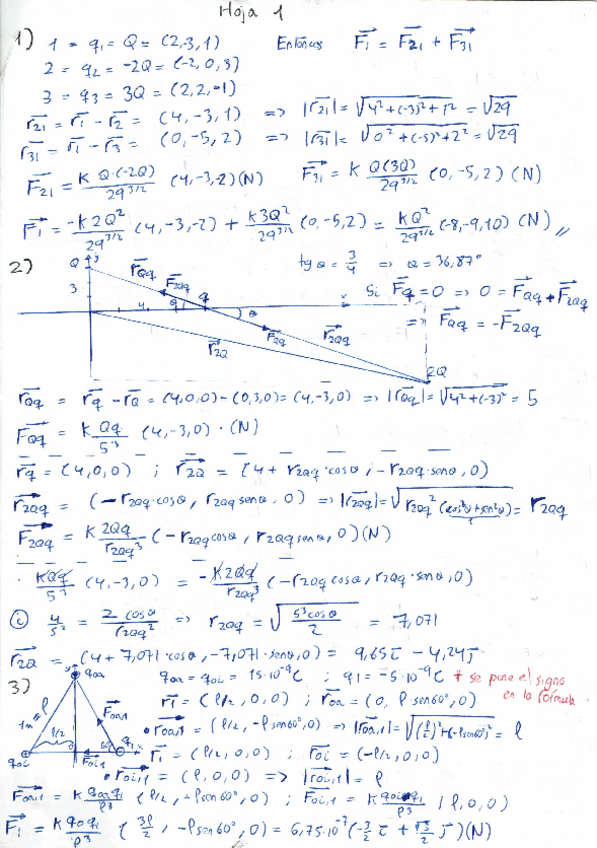 Hoja 1
1) 1 = q₁ = Q = (2,-3,1) Entonces F₁ = F₂₁ + F₃₁
2 = q₂ = -2Q = (-2,0,3)
3 = q₃ = 3Q = (2,2,-1)
r₂₁ = r₁ - r₂ = (4,-3,1) => |r₂₁| = √4²+(-3)²+1² = √29
r₃₁ = r₁ - r₃ = (0,-5,2) => |r₃₁| = √0²+(-5)²+2² = √29
F₂₁ = K Q·(-2Q) / 29^3/2 (4,-3,-2)(N) F₃₁ = K Q(3Q) / 29^3/2 (0,-5,2)(N)
F₁ = -K2Q² / 29^3/2 (4,-3,-2) + K3Q² / 29^3/2 (0,-5,2) = KQ² / 29^3/2 (-8,-9,10) (N) //
2) Q y tgθ = 3/4 => θ = 36,87°
3 4 q θ x
rQq FQq F2Qq r2Qq r2Q 2Q
Si Fq = 0 => 0 = FQq + F2Qq
=> FQq = -F2Qq
rQq = rq - rQ = (4,0,0) - (0,3,0) = (4,-3,0) => |rQq| = √4²+(-3)² = 5
FQq = K Qq / 5³ (4,-3,0) · (N)
rq = (4,0,0) ; r2Q = (4 + r2Qq·cosθ, - r2Qq·senθ, 0)
r2Qq = (- r2Qq·cosθ, r2Qq senθ, 0) => |r2Qq| = √r2Qq² (cos²θ + sen²θ) = r2Qq
F2Qq = K 2Qq / r2Qq³ (- r2Qq cosθ, r2Qq senθ, 0)(N)
KQq / 5³ (4,-3,0) = - K2Qq / r2Qq³ (- r2Qq cosθ, r2Qq·senθ, 0)
i 4/5³ = 2 cosθ / r2Qq² => r2Qq = √5³cosθ / 2 = 7,071
r2Q = (4 + 7,071·cosθ, -7,071·senθ, 0) = 9,65i - 4,24j
3) y q0a q0a = q0i = 15·10⁻⁹C ; q1 = -5·10⁻⁹C * se pone el signo
en la fórmula
1m = l l/2 F0a,1 60° q0i F0i,1 q1 x
r₁ = (l/2, 0,0) ; r0a = (0, l·sen60°, 0)
• r0a,1 = (l/2, -l sen60°, 0) => |r0a,1| = √(l/2)²+(-l sen60°)² = l
r₁ = (l/2, 0,0) ; r0i = (-l/2, 0,0)
• r0i,1 = (l,0,0) => |r0i,1| = l
F0a,1 = K q0a q1 / l³ (l/2, -l sen60°, 0) ; F0i,1 = K q0i q1 / l³ (l,0,0)
F₁ = K q0 q1 / l³ (3l/2, -l sen60°, 0) = 6,75·10⁻⁷ (-3/2 i + √3/2 j)(N)